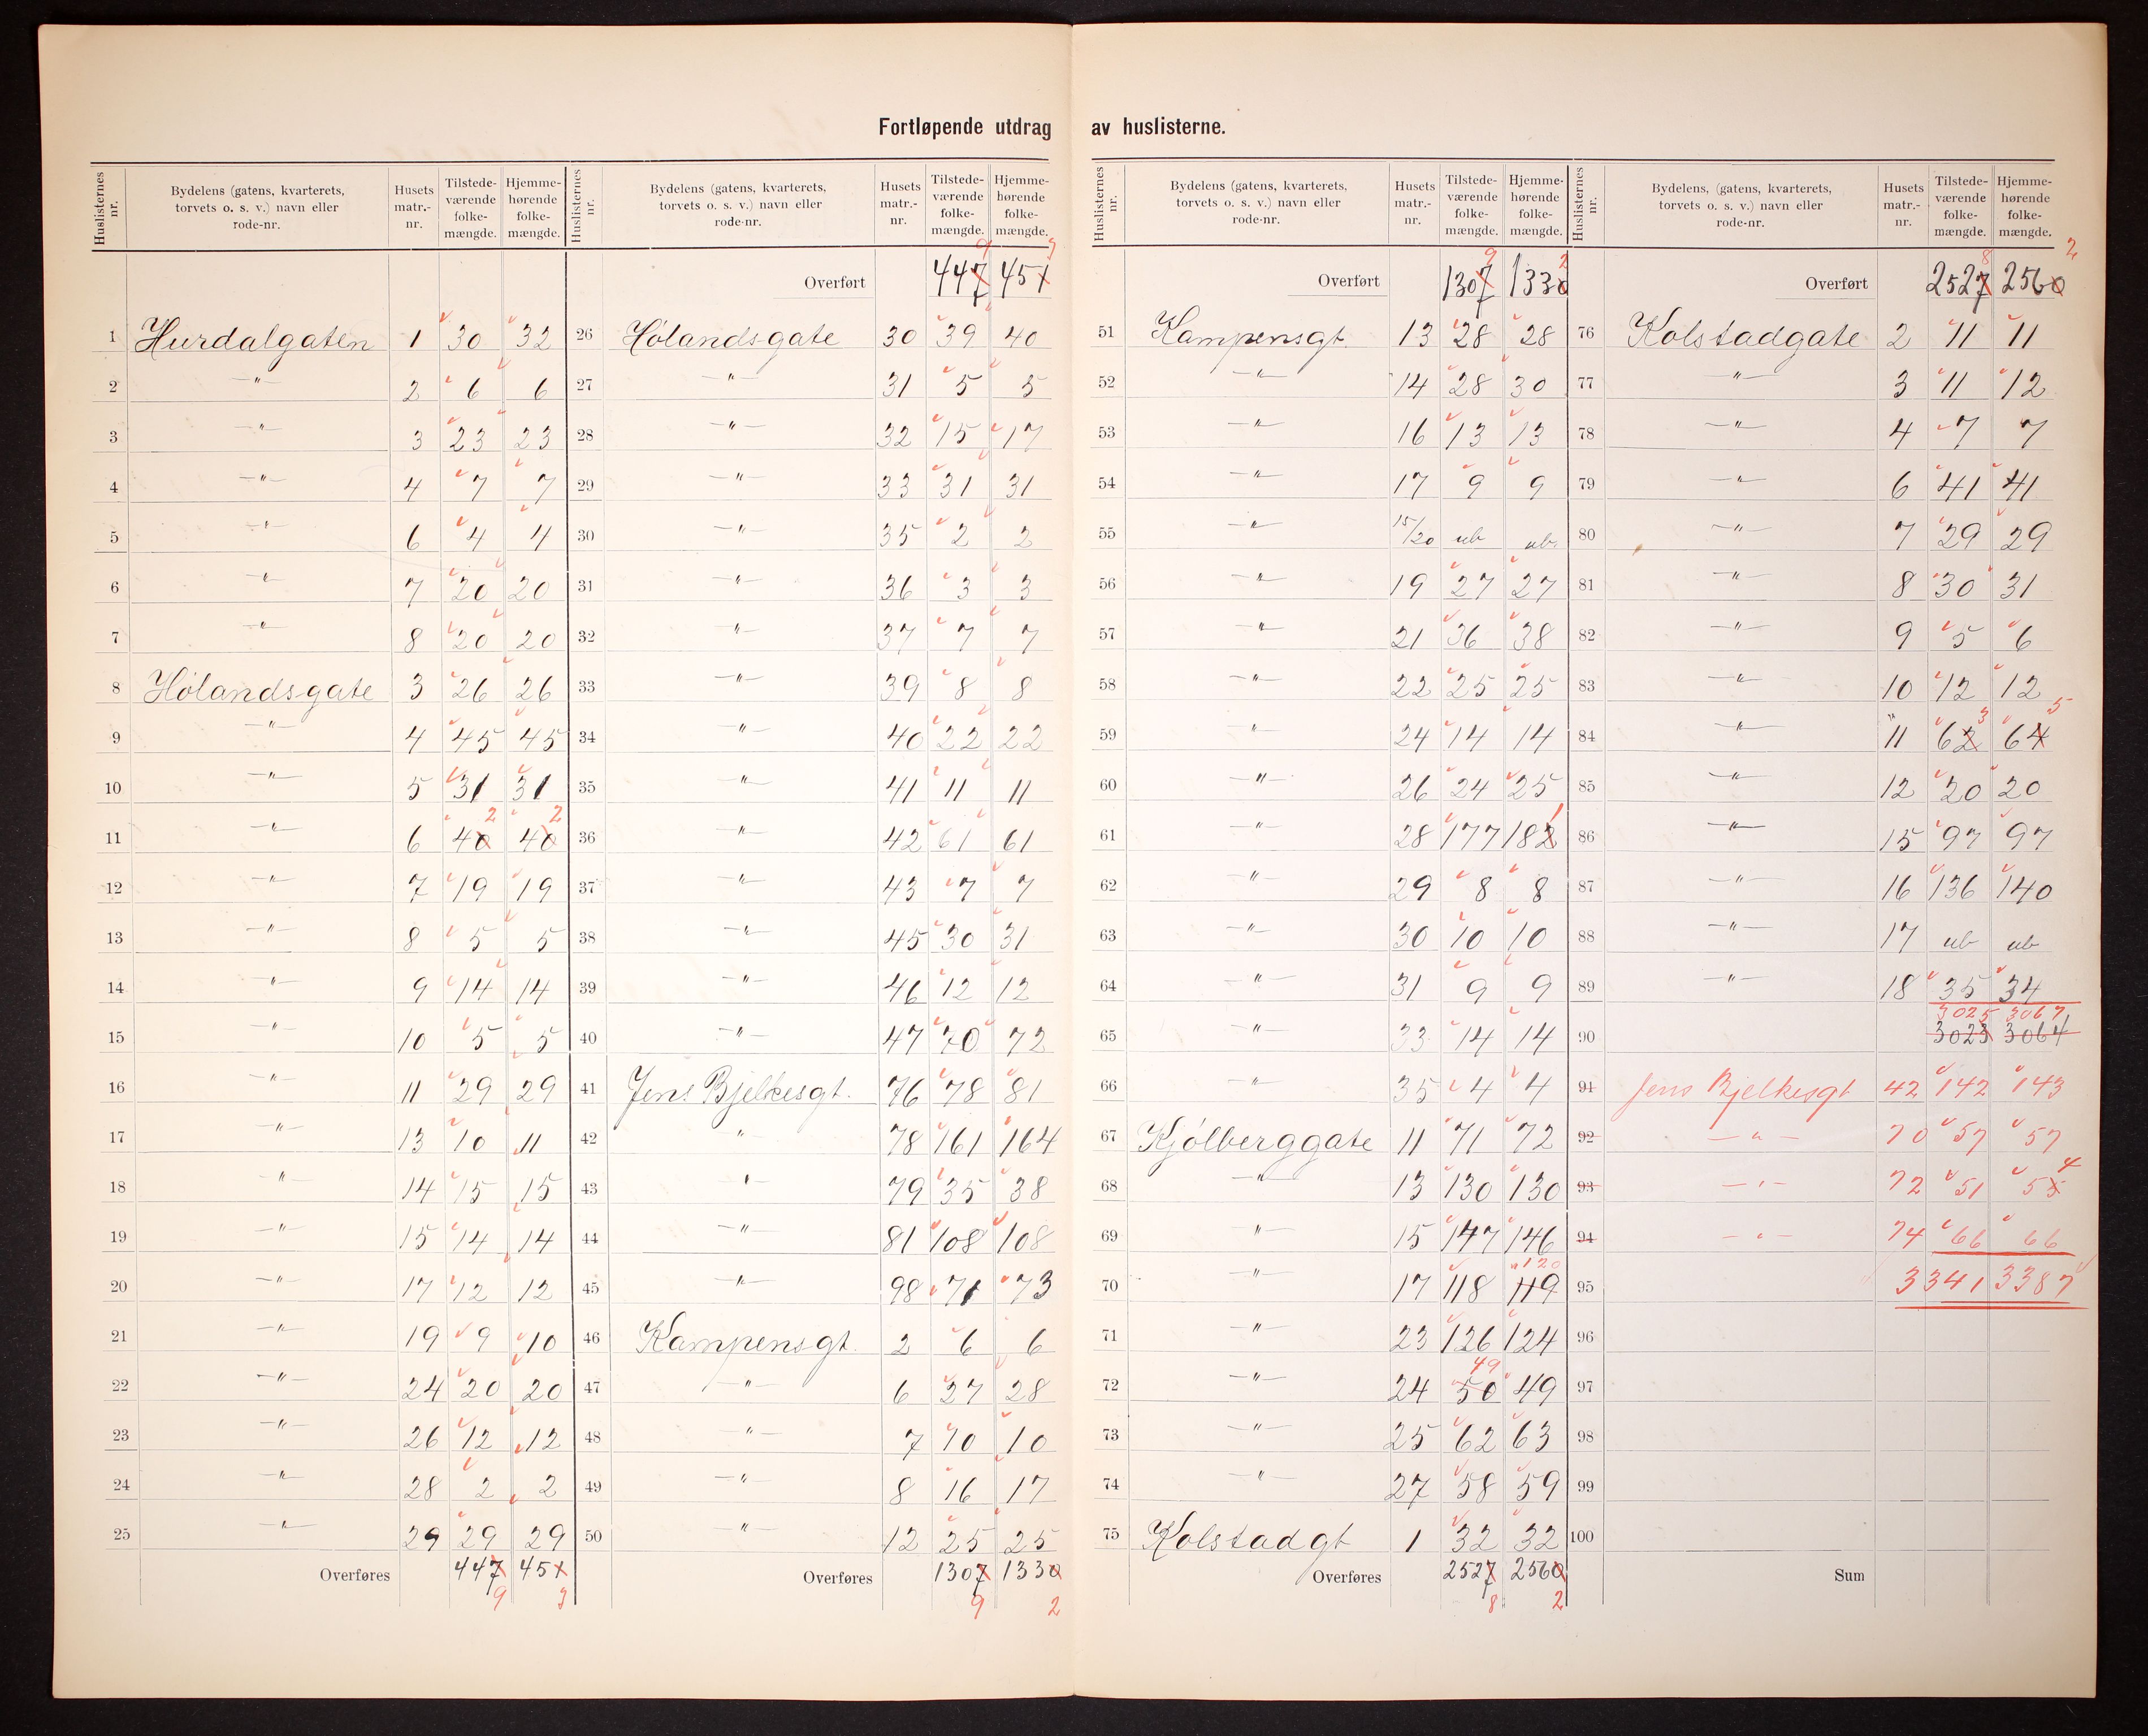 Fortløpende utdrag av huslisterne.
Huslisternes nr. | Bydelens (gatens, kvarterets, torvets o. s. v.) navn eller rode-nr. | Husets matr.-nr. | Tilstedeværende folkemængde. | Hjemmehørende folkemængde.
1 Hurdalgaten 1 30 32
2 —"— 2 6 6
3 —"— 3 23 23
4 —"— 4 7 7
5 —"— 6 4 4
6 —"— 7 20 20
7 —"— 8 20 20
8 Hølandsgate 3 26 26
9 —"— 4 45 45
10 —"— 5 31 31
11 —"— 6 40 2 40 2
12 —"— 7 19 19
13 —"— 8 5 5
14 —"— 9 14 14
15 —"— 10 5 5
16 —"— 11 29 29
17 —"— 13 10 11
18 —"— 14 15 15
19 —"— 15 14 14
20 —"— 17 12 12
21 —"— 19 9 10
22 —"— 24 20 20
23 —"— 26 12 12
24 —"— 28 2 2
25 —"— 29 29 29
Overføres 447 451
9 3
Huslisternes nr. | Bydelens (gatens, kvarterets, torvets o. s. v.) navn eller rode-nr. | Husets matr.-nr. | Tilstedeværende folkemængde. | Hjemmehørende folkemængde.
9 3
Overført 447 451
26 Hølandsgate 30 39 40
27 —"— 31 5 5
28 —"— 32 15 17
29 —"— 33 31 31
30 —"— 35 2 2
31 —"— 36 3 3
32 —"— 37 7 7
33 —"— 39 8 8
34 —"— 40 22 22
35 —"— 41 11 11
36 —"— 42 61 61
37 —"— 43 7 7
38 —"— 45 30 31
39 —"— 46 12 12
40 —"— 47 70 72
41 Jens Bjelkesgt. 76 78 81
42 " 78 161 164
43 —"— 79 35 38
44 —"— 81 108 108
45 —"— 98 71 73
46 Kampensgt. 2 6 6
47 —"— 6 27 28
48 —"— 7 10 10
49 —"— 8 16 17
50 —"— 12 25 25
Overføres 1307 1330
9 2
Huslisternes nr. | Bydelens (gatens, kvarterets, torvets o. s. v.) navn eller rode-nr. | Husets matr.-nr. | Tilstedeværende folkemængde. | Hjemmehørende folkemængde.
9 2
Overført 1307 1330
51 Kampensgt. 13 28 28
52 —"— 14 28 30
53 —"— 16 13 13
54 —"— 17 9 9
55 —"— 15/20 ub ub
56 —"— 19 27 27
57 —"— 21 36 38
58 —"— 22 25 25
59 —"— 24 14 14
60 —"— 26 24 25
61 —"— 28 177 182 1
62 —"— 29 8 8
63 —"— 30 10 10
64 —"— 31 9 9
65 —"— 33 14 14
66 —"— 35 4 4
67 Kjølberggate 11 71 72
68 —"— 13 130 130
69 —"— 15 147 146
70 —"— 17 118 119 120
71 —"— 23 126 124
72 —"— 24 50 49 49
73 —"— 25 62 63
74 —"— 27 58 59
75 Kolstadgt 1 32 32
Overføres 2527 2560
8 2
Huslisternes nr. | Bydelens, (gatens, kvarterets, torvets o. s. v.) navn eller rode-nr. | Husets matr.-nr. | Tilstedeværende folkemængde. | Hjemmehørende folkemængde.
8 2
Overført 2527 2560
76 Kolstadgate 2 11 11
77 —"— 3 11 12
78 —"— 4 7 7
79 —"— 6 41 41
80 —"— 7 29 29
81 —"— 8 30 31
82 —"— 9 5 6
83 —"— 10 12 12
84 —"— 11 62 3 64 5
85 —"— 12 20 20
86 —"— 15 97 97
87 —"— 16 136 140
88 —"— 17 ub ub
89 —"— 18 35 34
3025 3067
90 3023 3064
91 Jens Bjelkesgt 42 142 143
92 —"— 70 57 57
93 —"— 72 51 55 4
94 —"— 74 66 66
95 3341 3387
96
97
98
99
100
Sum